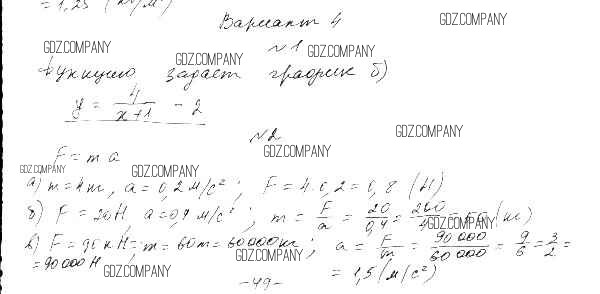 = 1,25 (кг/м³)
Вариант 4
GDZ.COMPANY
GDZ.COMPANY
№1
GDZ.COMPANY
GDZ.COMPANY
Функцию задает график б)
GDZ.COMPANY
y = 4/(x+1) - 2
GDZ.COMPANY
№2
GDZ.COMPANY
F = m a
GDZ.COMPANY
GDZ.COMPANY
а) m = 4 кг, a = 0,2 м/с²; F = 4·0,2 = 0,8 (Н)
GDZ.COMPANY
б) F = 20 Н, a = 0,4 м/с²; m = F/a = 20/0,4 = 200/4 = 50 (кг)
GDZ.COMPANY
в) F = 90 кН = m = 60 т = 60000 кг; a = F/m = 90 000/60 000 = 9/6 = 3/2 =
= 90 000 Н
GDZ.COMPANY
GDZ.COMPANY
= 1,5 (м/с²)
-49-